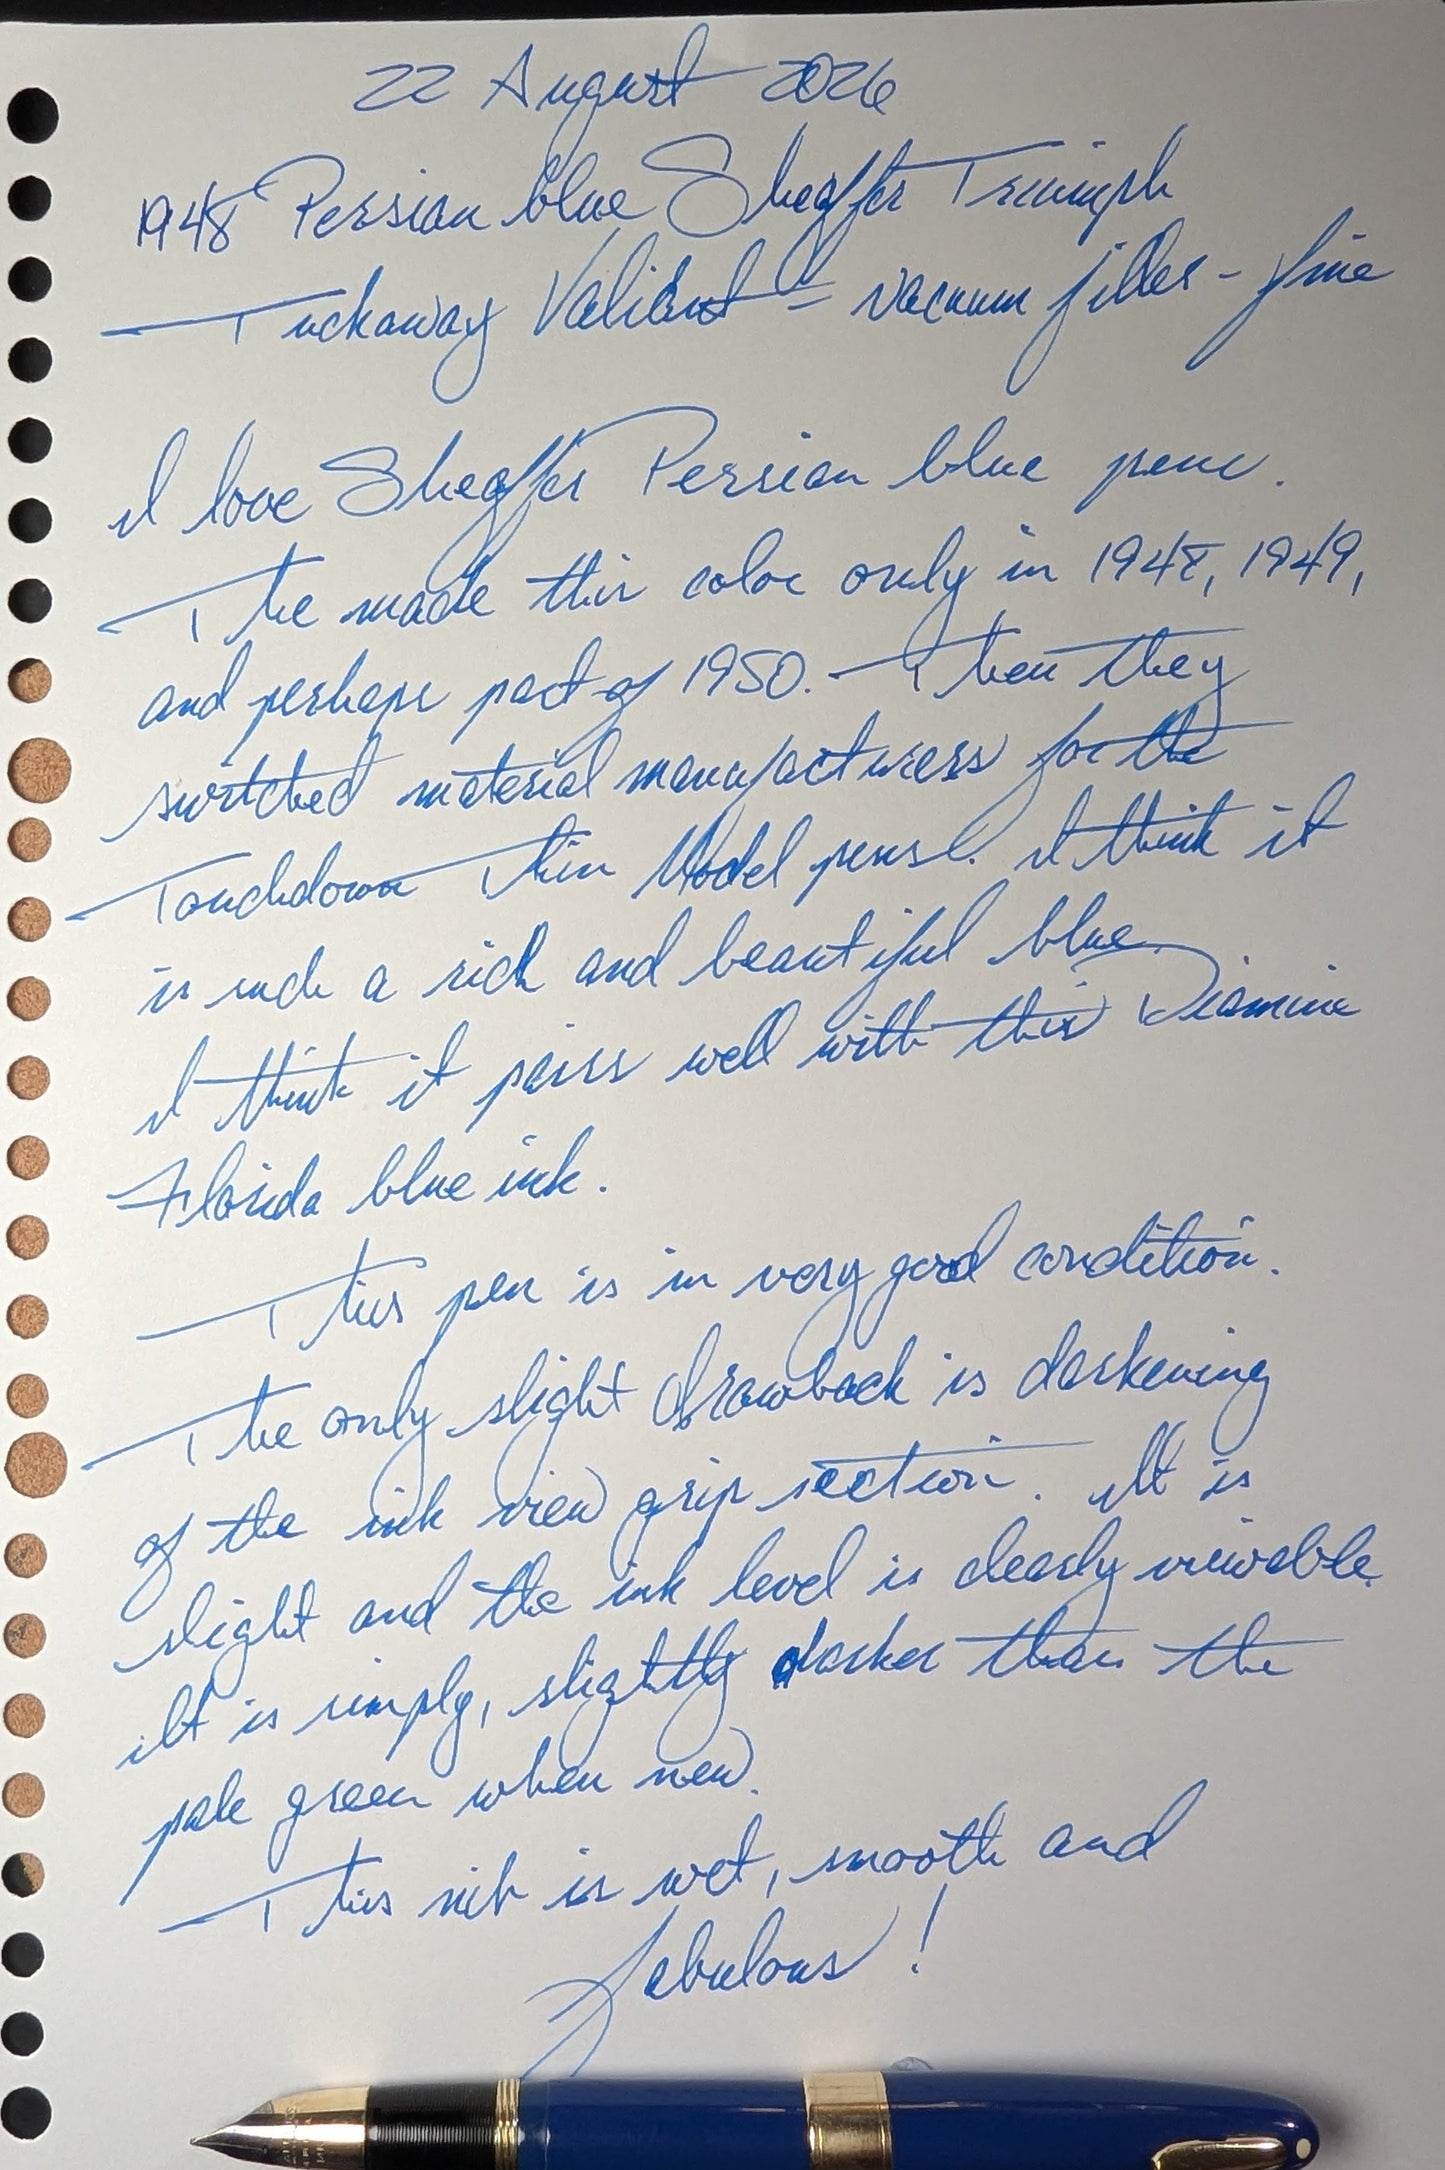 22 August 2026
1948 Persian blue Sheaffer Triumph
Tuckaway Valiant = vacuum filler - fine
I love Sheaffer Persian blue pens.
The made this color only in 1948, 1949,
and perhaps part of 1950. Then they
switched material manufacturers for the
Touchdown Thin Model pens. I think it
is such a rich and beautiful blue.
I think it pairs well with this Diamine
Florida blue ink.
This pen is in very good condition.
The only slight drawback is darkening
of the ink view grip section. It is
slight and the ink level is clearly viewable.
It is simply, slightly darker than the
pale green when new.
This nib is wet, smooth and
fabulous!